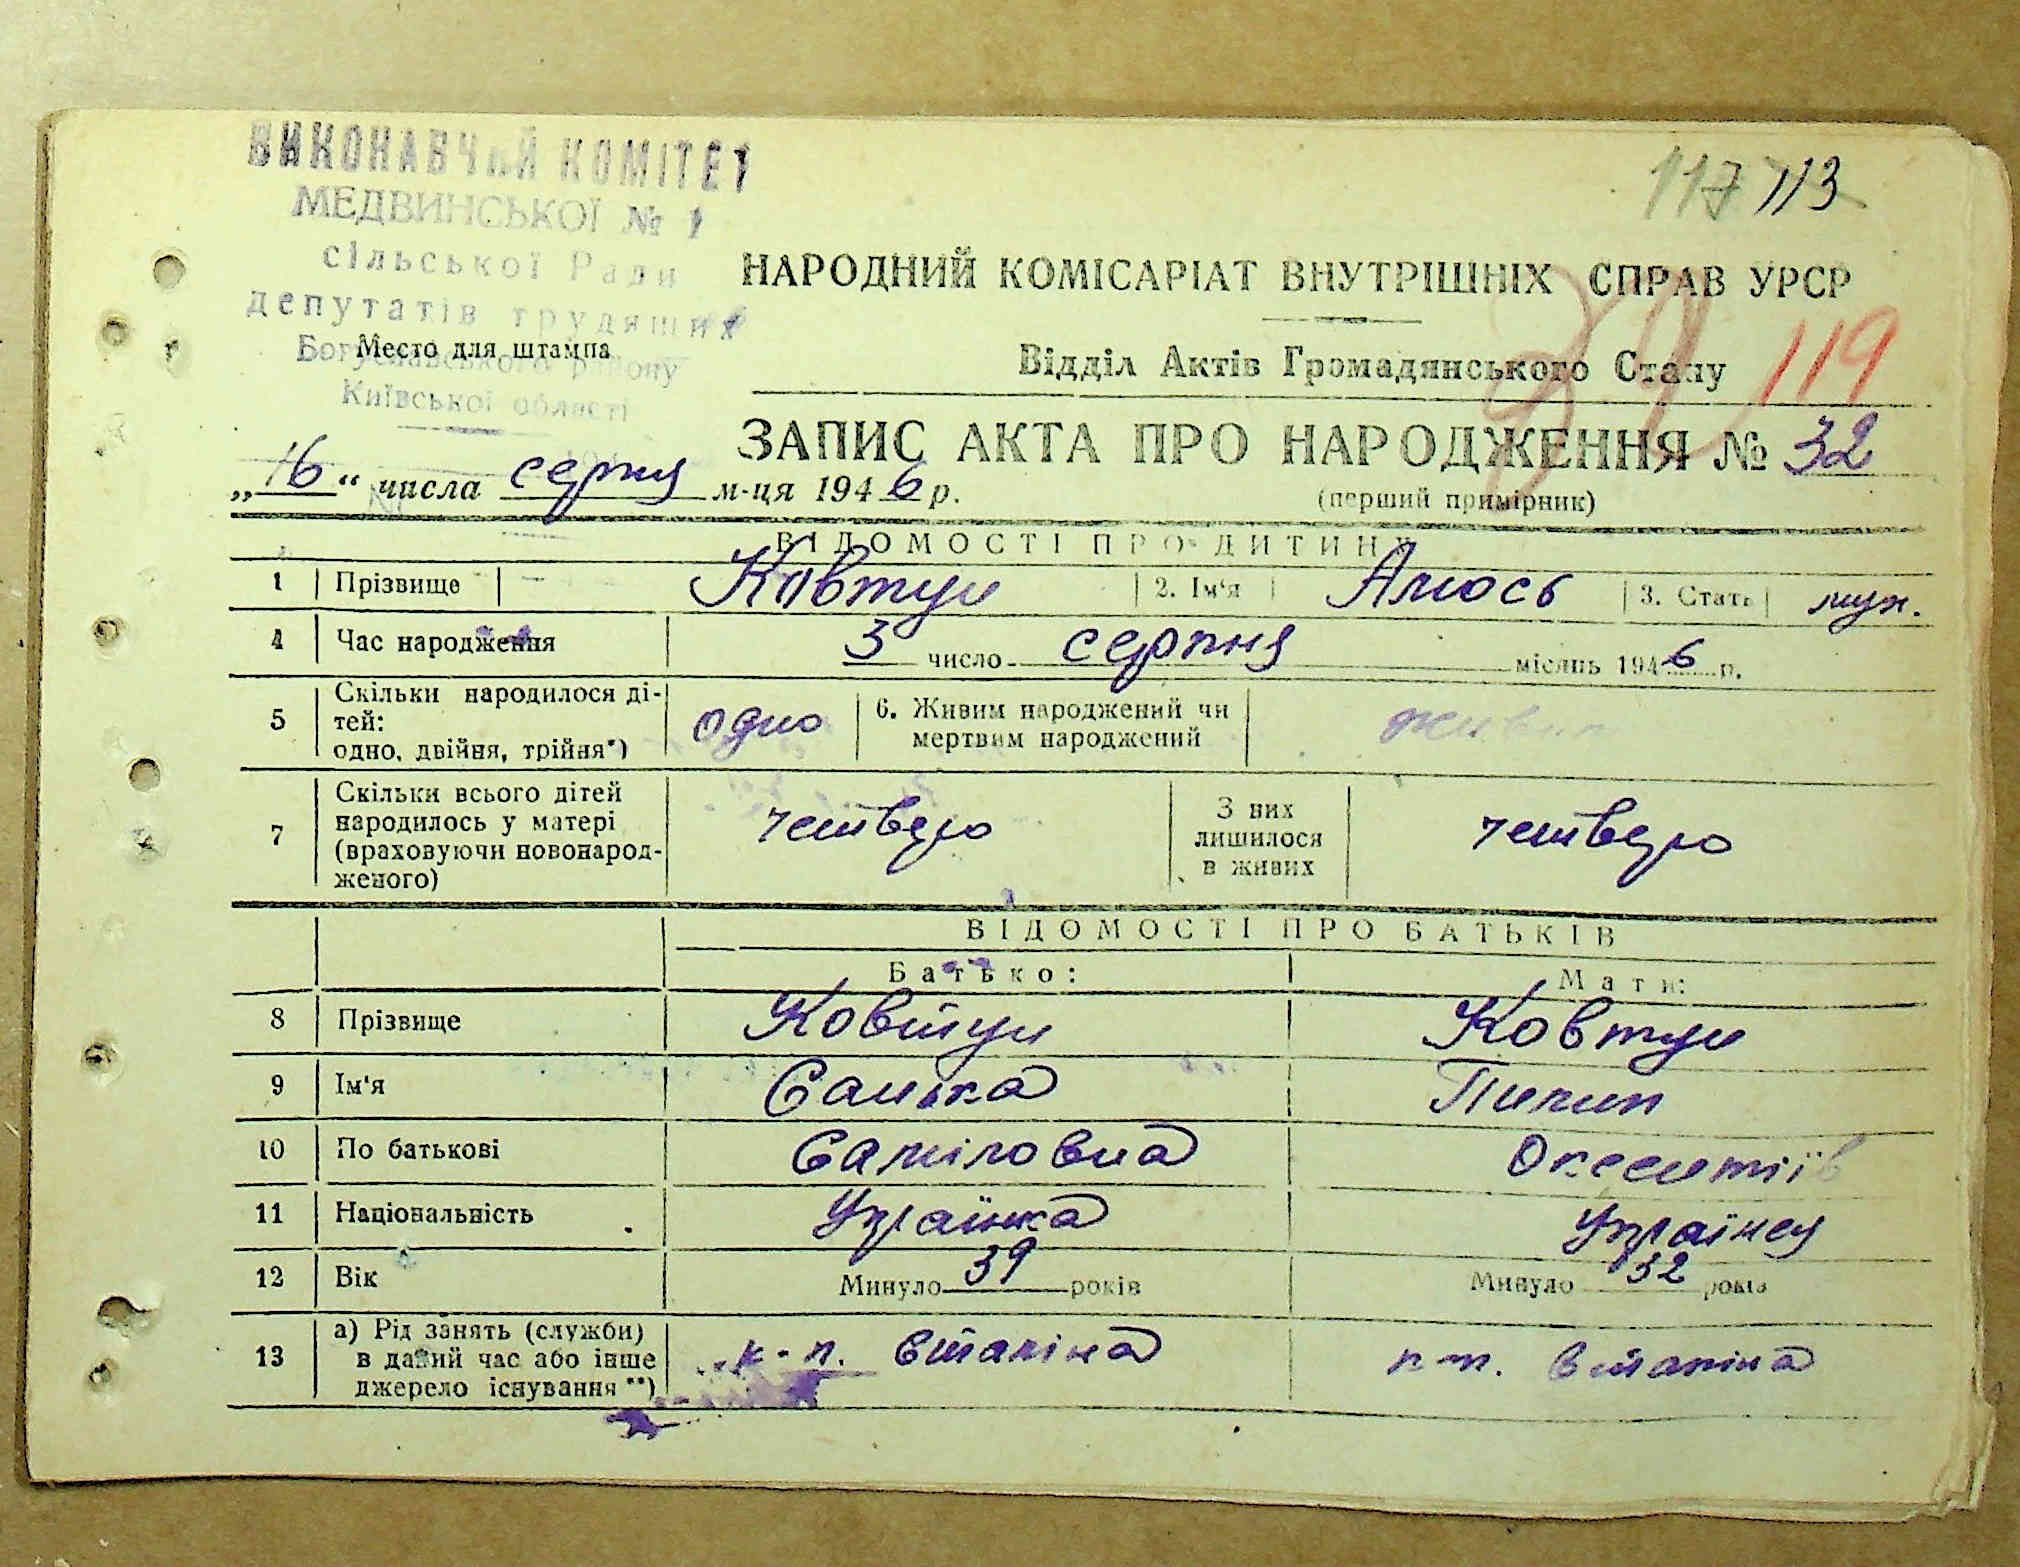 ВИКОНАВЧИЙ КОМІТЕТ
МЕДВИНСЬКОЇ № 1
сільської Ради
депутатів трудящих
Богуславського району
Київської області
Место для штампа
117 113
НАРОДНИЙ КОМІСАРІАТ ВНУТРІШНІХ СПРАВ УРСР
Відділ Актів Громадянського Стану
119
ЗАПИС АКТА ПРО НАРОДЖЕННЯ № 32
(перший примірник)
„16“ числа серпня м-ця 1946 р.
ВІДОМОСТІ ПРО ДИТИНУ
1 Прізвище Ковтун 2. Ім'я Альось 3. Стать муж.
4 Час народження 3 число серпня місяць 1946 р.
5 Скільки народилося ді-
тей:
одно, двійня, трійня*) одно 6. Живим народжений чи
мертвим народжений живим
7 Скільки всього дітей
народилось у матері
(враховуючи новонарод-
женого) четверо З них
лишилося
в живих четверо
ВІДОМОСТІ ПРО БАТЬКІВ
Батько: Мати:
8 Прізвище Ковтун Ковтун
9 Ім'я Санька Пилип
10 По батькові Самiловна Оксентіїв
11 Національність Українка Українец
12 Вік Минуло 39 років Минуло 32 років
13 а) Рід занять (служби)
в даний час або інше
джерело існування **)